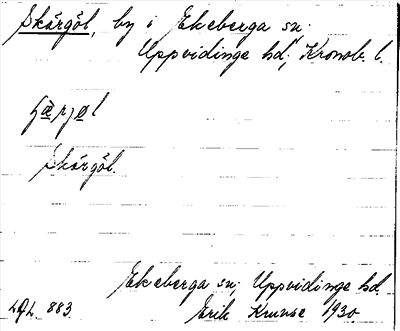 Skärgöl, by i Ekeberga sn;
Uppvidinge hd; Kronob. l.
Skärgöl.
Ekeberga sn; Uppvidinge hd.
883. Erik Kruuse 1930